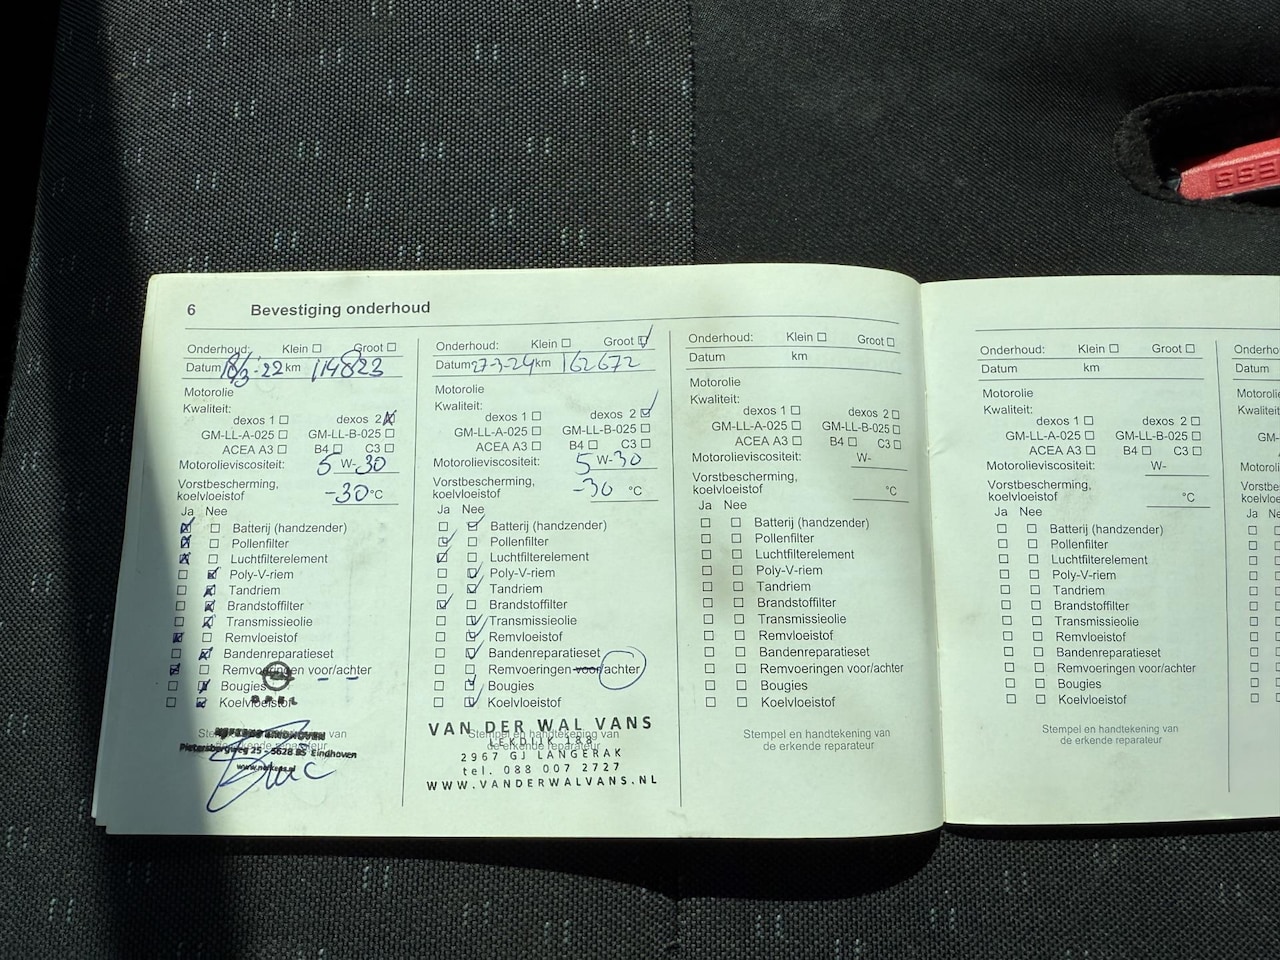 6 Bevestiging onderhoud
Onderhoud: Klein Groot
Datum 18/3-'22 km 114823
Motorolie
Kwaliteit:
dexos 1 dexos 2
GM-LL-A-025 GM-LL-B-025
ACEA A3 B4 C3
Motorolieviscositeit: 5 W-30
Vorstbescherming,
koelvloeistof -30 °C
Ja Nee
Batterij (handzender)
Pollenfilter
Luchtfilterelement
Poly-V-riem
Tandriem
Brandstoffilter
Transmissieolie
Remvloeistof
Bandenreparatieset
Remvoeringen voor/achter
Bougies
Koelvloeistof
OPEL
Pietersbergweg 25 - 5628 BS Eindhoven
Onderhoud: Klein Groot
Datum 27-3-24 km 162672
Motorolie
Kwaliteit:
dexos 1 dexos 2
GM-LL-A-025 GM-LL-B-025
ACEA A3 B4 C3
Motorolieviscositeit: 5 W-30
Vorstbescherming,
koelvloeistof -30 °C
Ja Nee
Batterij (handzender)
Pollenfilter
Luchtfilterelement
Poly-V-riem
Tandriem
Brandstoffilter
Transmissieolie
Remvloeistof
Bandenreparatieset
Remvoeringen voor/achter
Bougies
Koelvloeistof
VAN DER WAL VANS
Stempel en handtekening van
LEKDIJK 188
de erkende reparateur
2967 GJ LANGERAK
tel. 088 007 2727
WWW.VANDERWALVANS.NL
Onderhoud: Klein Groot
Datum km
Motorolie
Kwaliteit:
dexos 1 dexos 2
GM-LL-A-025 GM-LL-B-025
ACEA A3 B4 C3
Motorolieviscositeit: W-
Vorstbescherming,
koelvloeistof °C
Ja Nee
Batterij (handzender)
Pollenfilter
Luchtfilterelement
Poly-V-riem
Tandriem
Brandstoffilter
Transmissieolie
Remvloeistof
Bandenreparatieset
Remvoeringen voor/achter
Bougies
Koelvloeistof
Stempel en handtekening van
de erkende reparateur
Onderhoud: Klein Groot
Datum km
Motorolie
Kwaliteit:
dexos 1 dexos 2
GM-LL-A-025 GM-LL-B-025
ACEA A3 B4 C3
Motorolieviscositeit: W-
Vorstbescherming,
koelvloeistof °C
Ja Nee
Batterij (handzender)
Pollenfilter
Luchtfilterelement
Poly-V-riem
Tandriem
Brandstoffilter
Transmissieolie
Remvloeistof
Bandenreparatieset
Remvoeringen voor/achter
Bougies
Koelvloeistof
Stempel en handtekening van
de erkende reparateur
Onderho
Datum
Motorolie
Kwaliteit
Ja Nee
PRESS